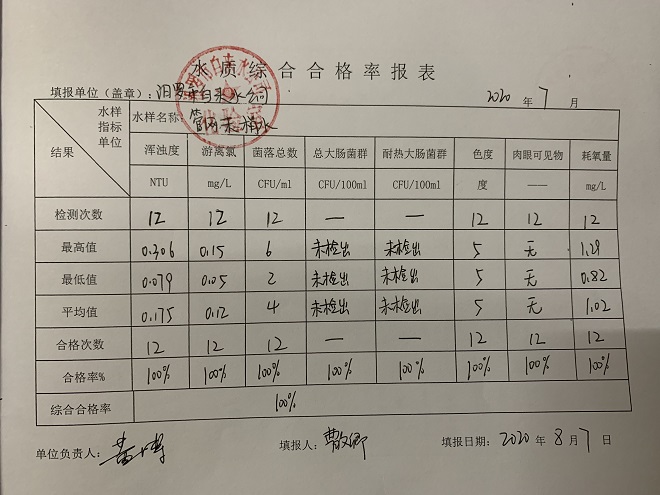 水质综合合格率报表
填报单位（盖章）：汨罗市自来水公司 2020 年 7 月
水样 指标 单位 结果 水样名称：管网末梢水
浑浊度 游离氯 菌落总数 总大肠菌群 耐热大肠菌群 色度 肉眼可见物 耗氧量
NTU mg/L CFU/ml CFU/100ml CFU/100ml 度 —— mg/L
检测次数 12 12 12 — — 12 12 12
最高值 0.306 0.15 6 未检出 未检出 5 无 1.29
最低值 0.079 0.05 2 未检出 未检出 5 无 0.82
平均值 0.175 0.12 4 未检出 未检出 5 无 1.02
合格次数 12 12 12 — — 12 12 12
合格率% 100% 100% 100% 100% 100% 100% 100% 100%
综合合格率 100%
单位负责人： 填报人： 填报日期：2020 年 8 月 7 日